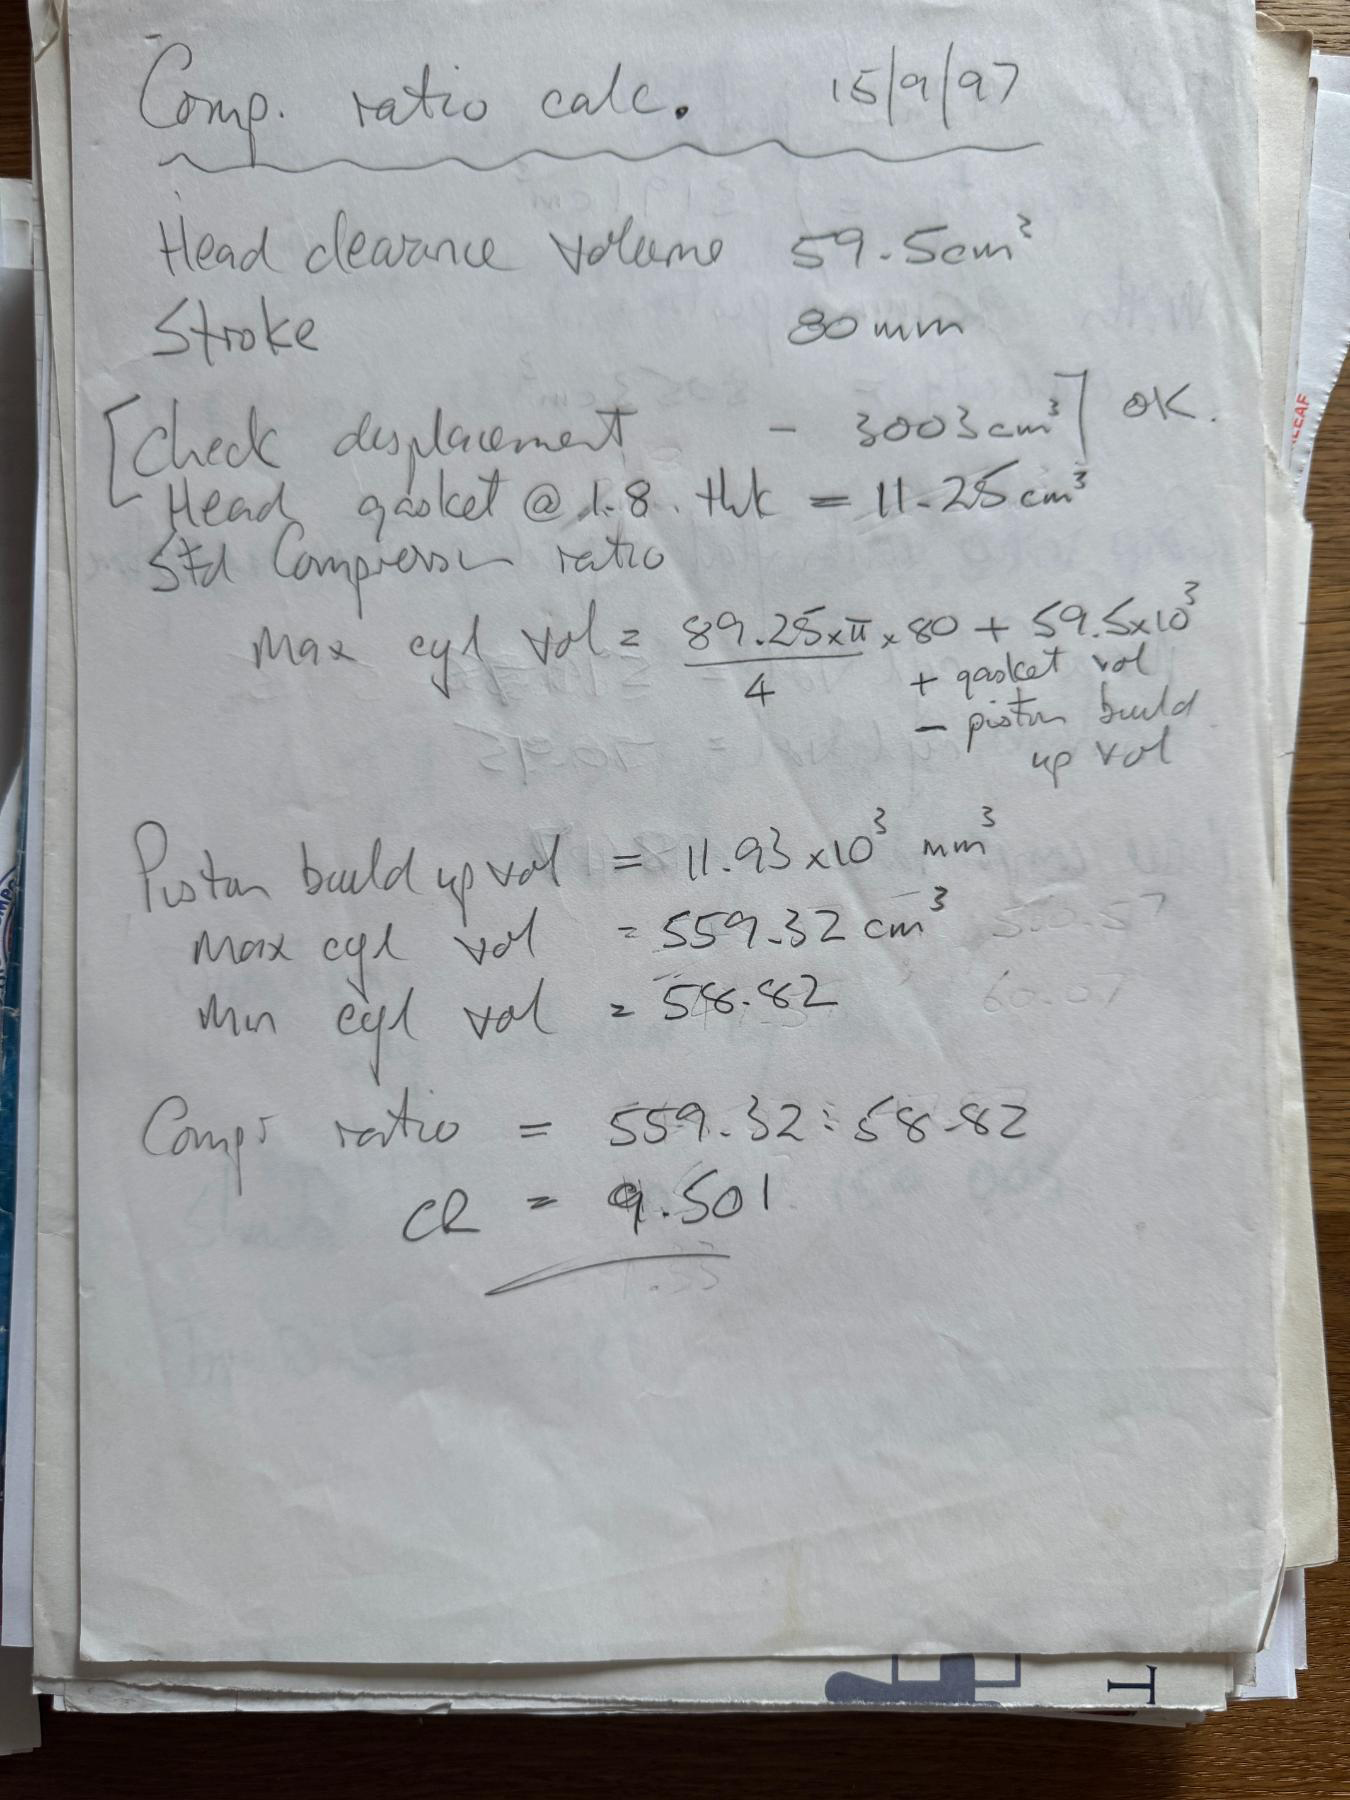 Comp. ratio calc. 15/9/97
Head clearance volume 59.5cm³
Stroke 80mm
[Check displacement - 3003cm³] OK.
Head gasket @ 1.8. thk = 11.25cm³
Std Compression ratio
Max cyl vol = 89.25xπ/4 x 80 + 59.5x10³
+ gasket vol
- piston build
up vol
Piston build up vol = 11.93 x10³ mm³
Max cyl vol = 559.32 cm³
Min cyl vol = 58.82 60.07
Compr ratio = 559.32 : 58.82
CR = 9.501
LEAF
T